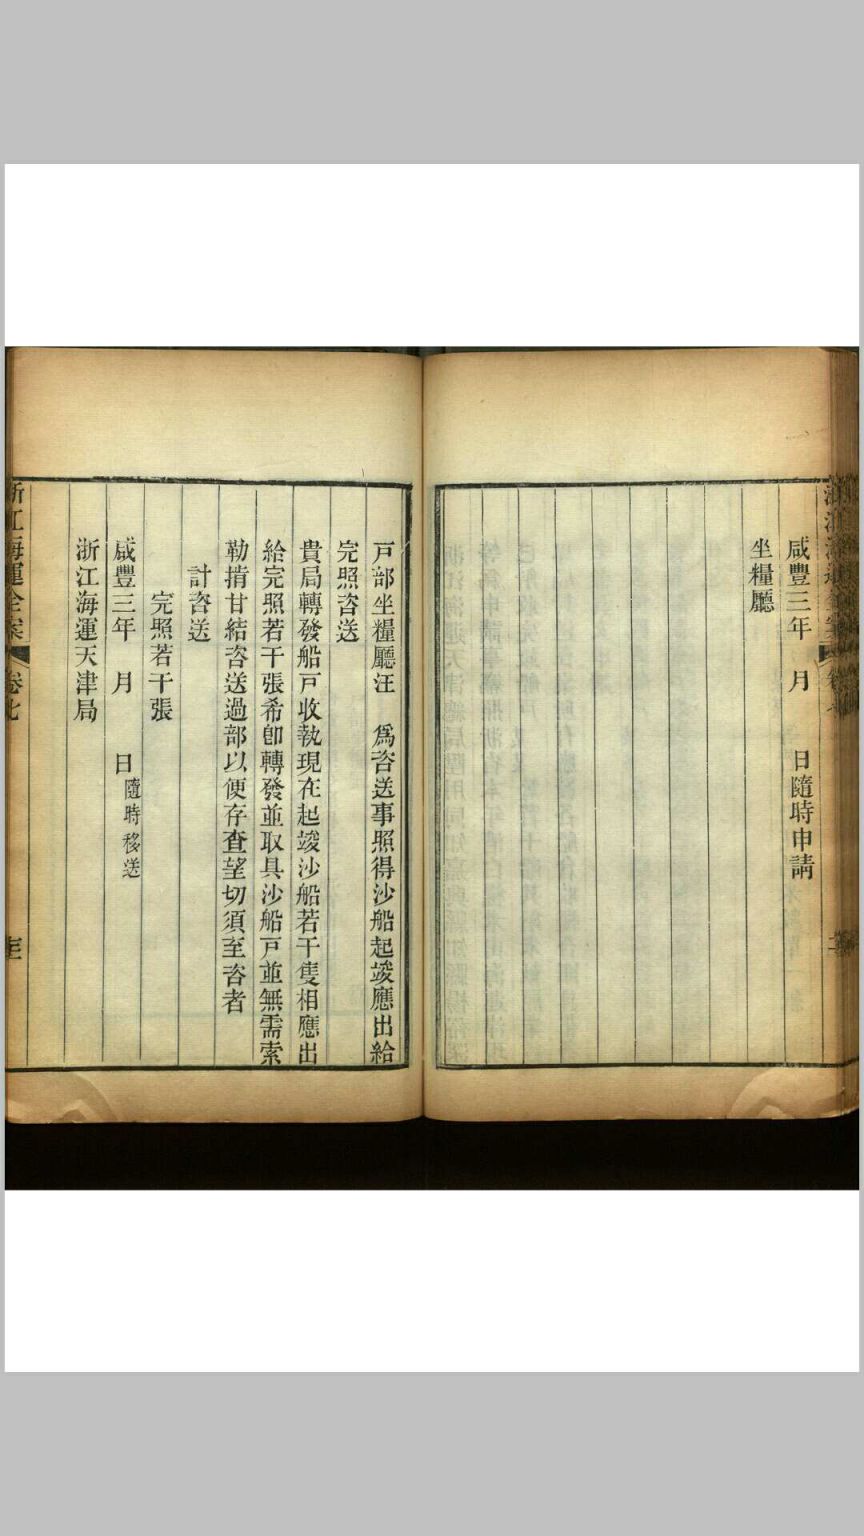 咸豐三年　月　　日隨時申請
坐糧廳
戸部坐糧廳汪　爲咨送事照得沙船起竣應出給
完照咨送
貴局轉發船戸收執現在起竣沙船若干隻相應出
給完照若干張希卽轉發並取具沙船戸並無需索
勒掯甘結咨送過部以便存查望切須至咨者
計咨送
完照若干張
咸豐三年　月　　日隨時移送
浙江海運天津局
浙江海運全案　卷七